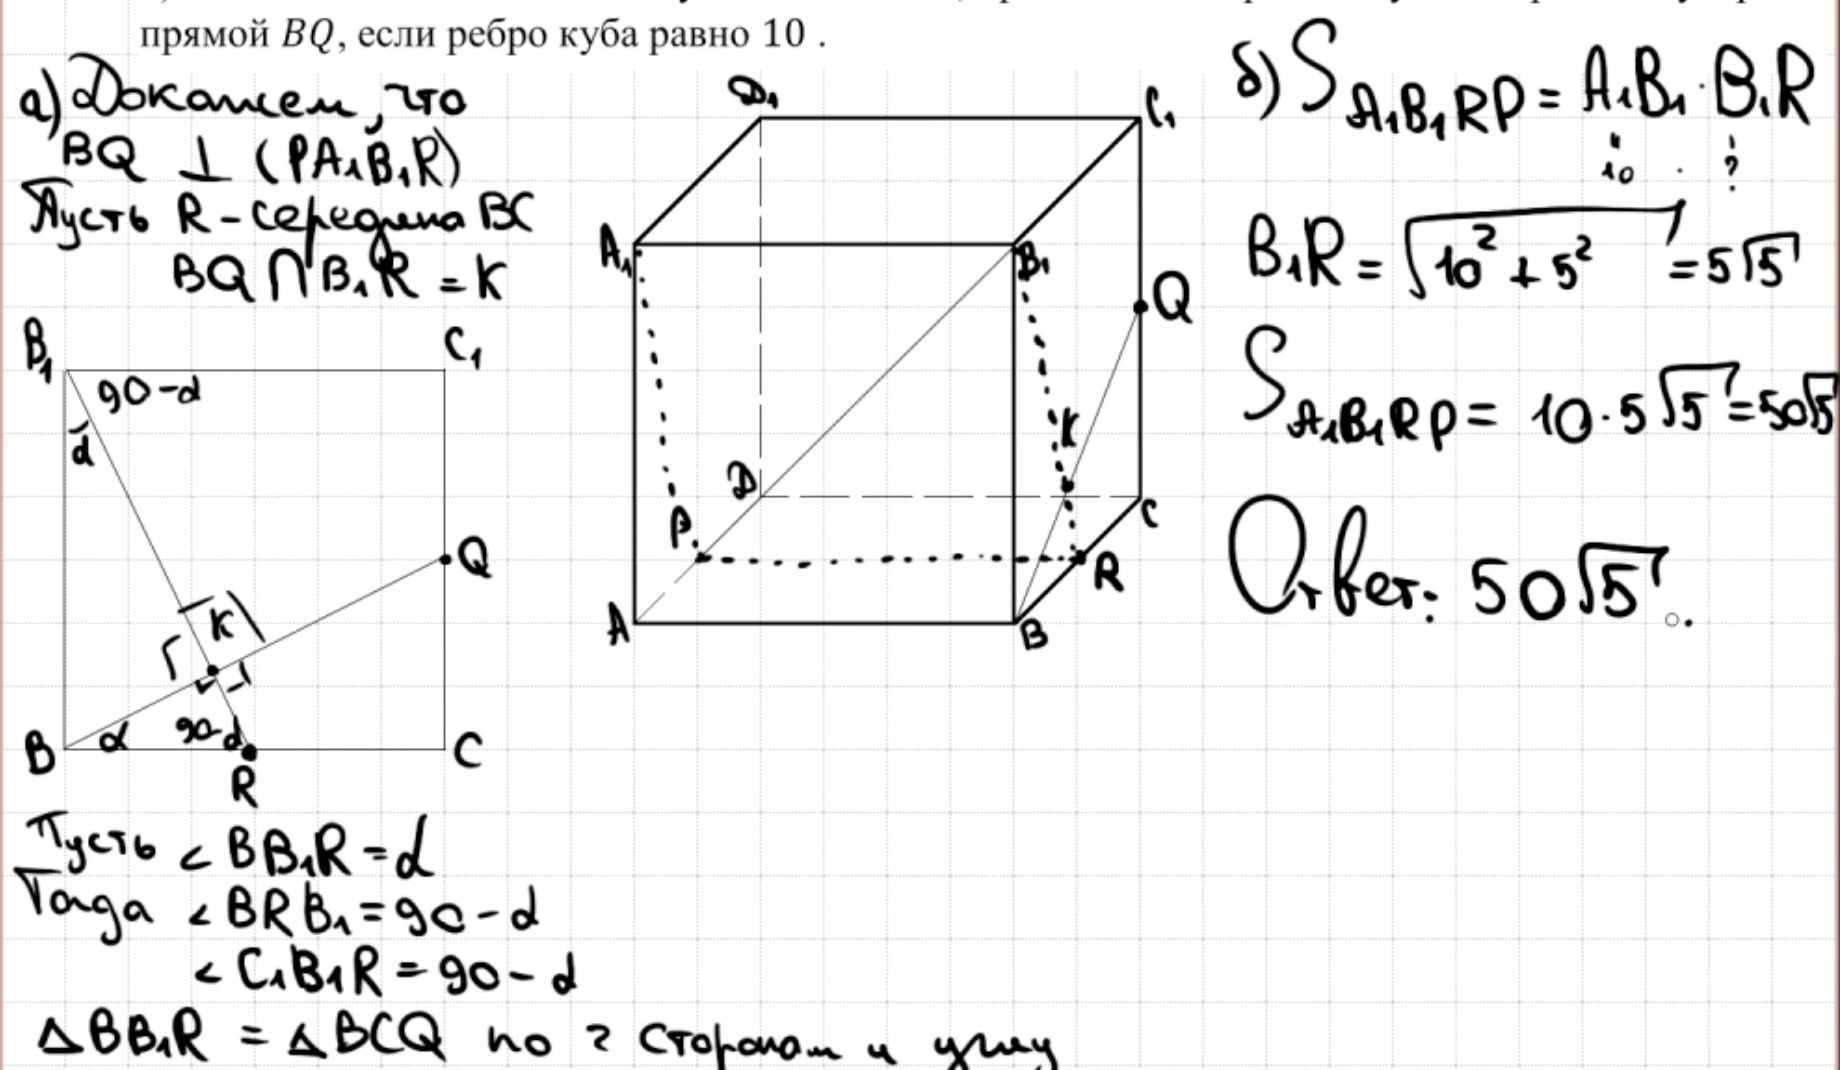 прямой BQ, если ребро куба равно 10 .
а) Докажем, что
BQ ⊥ (PA₁B₁R)
Пусть R - середина BC
BQ ∩ B₁R = K
B₁
C₁
90-α
α
Q
K
B
α
90-α
R
C
Пусть < BB₁R = α
Тогда < BRB₁ = 90 - α
< C₁B₁R = 90 - α
Δ BB₁R = Δ BCQ по 2 сторонам и углу
D₁
C₁
A₁
B₁
Q
K
D
C
P
R
A
B
б) S A₁B₁RP = A₁B₁ · B₁R
10 . ?
B₁R = √10² + 5² = 5√5
S A₁B₁RP = 10 · 5√5 = 50√5
Ответ: 50√5.